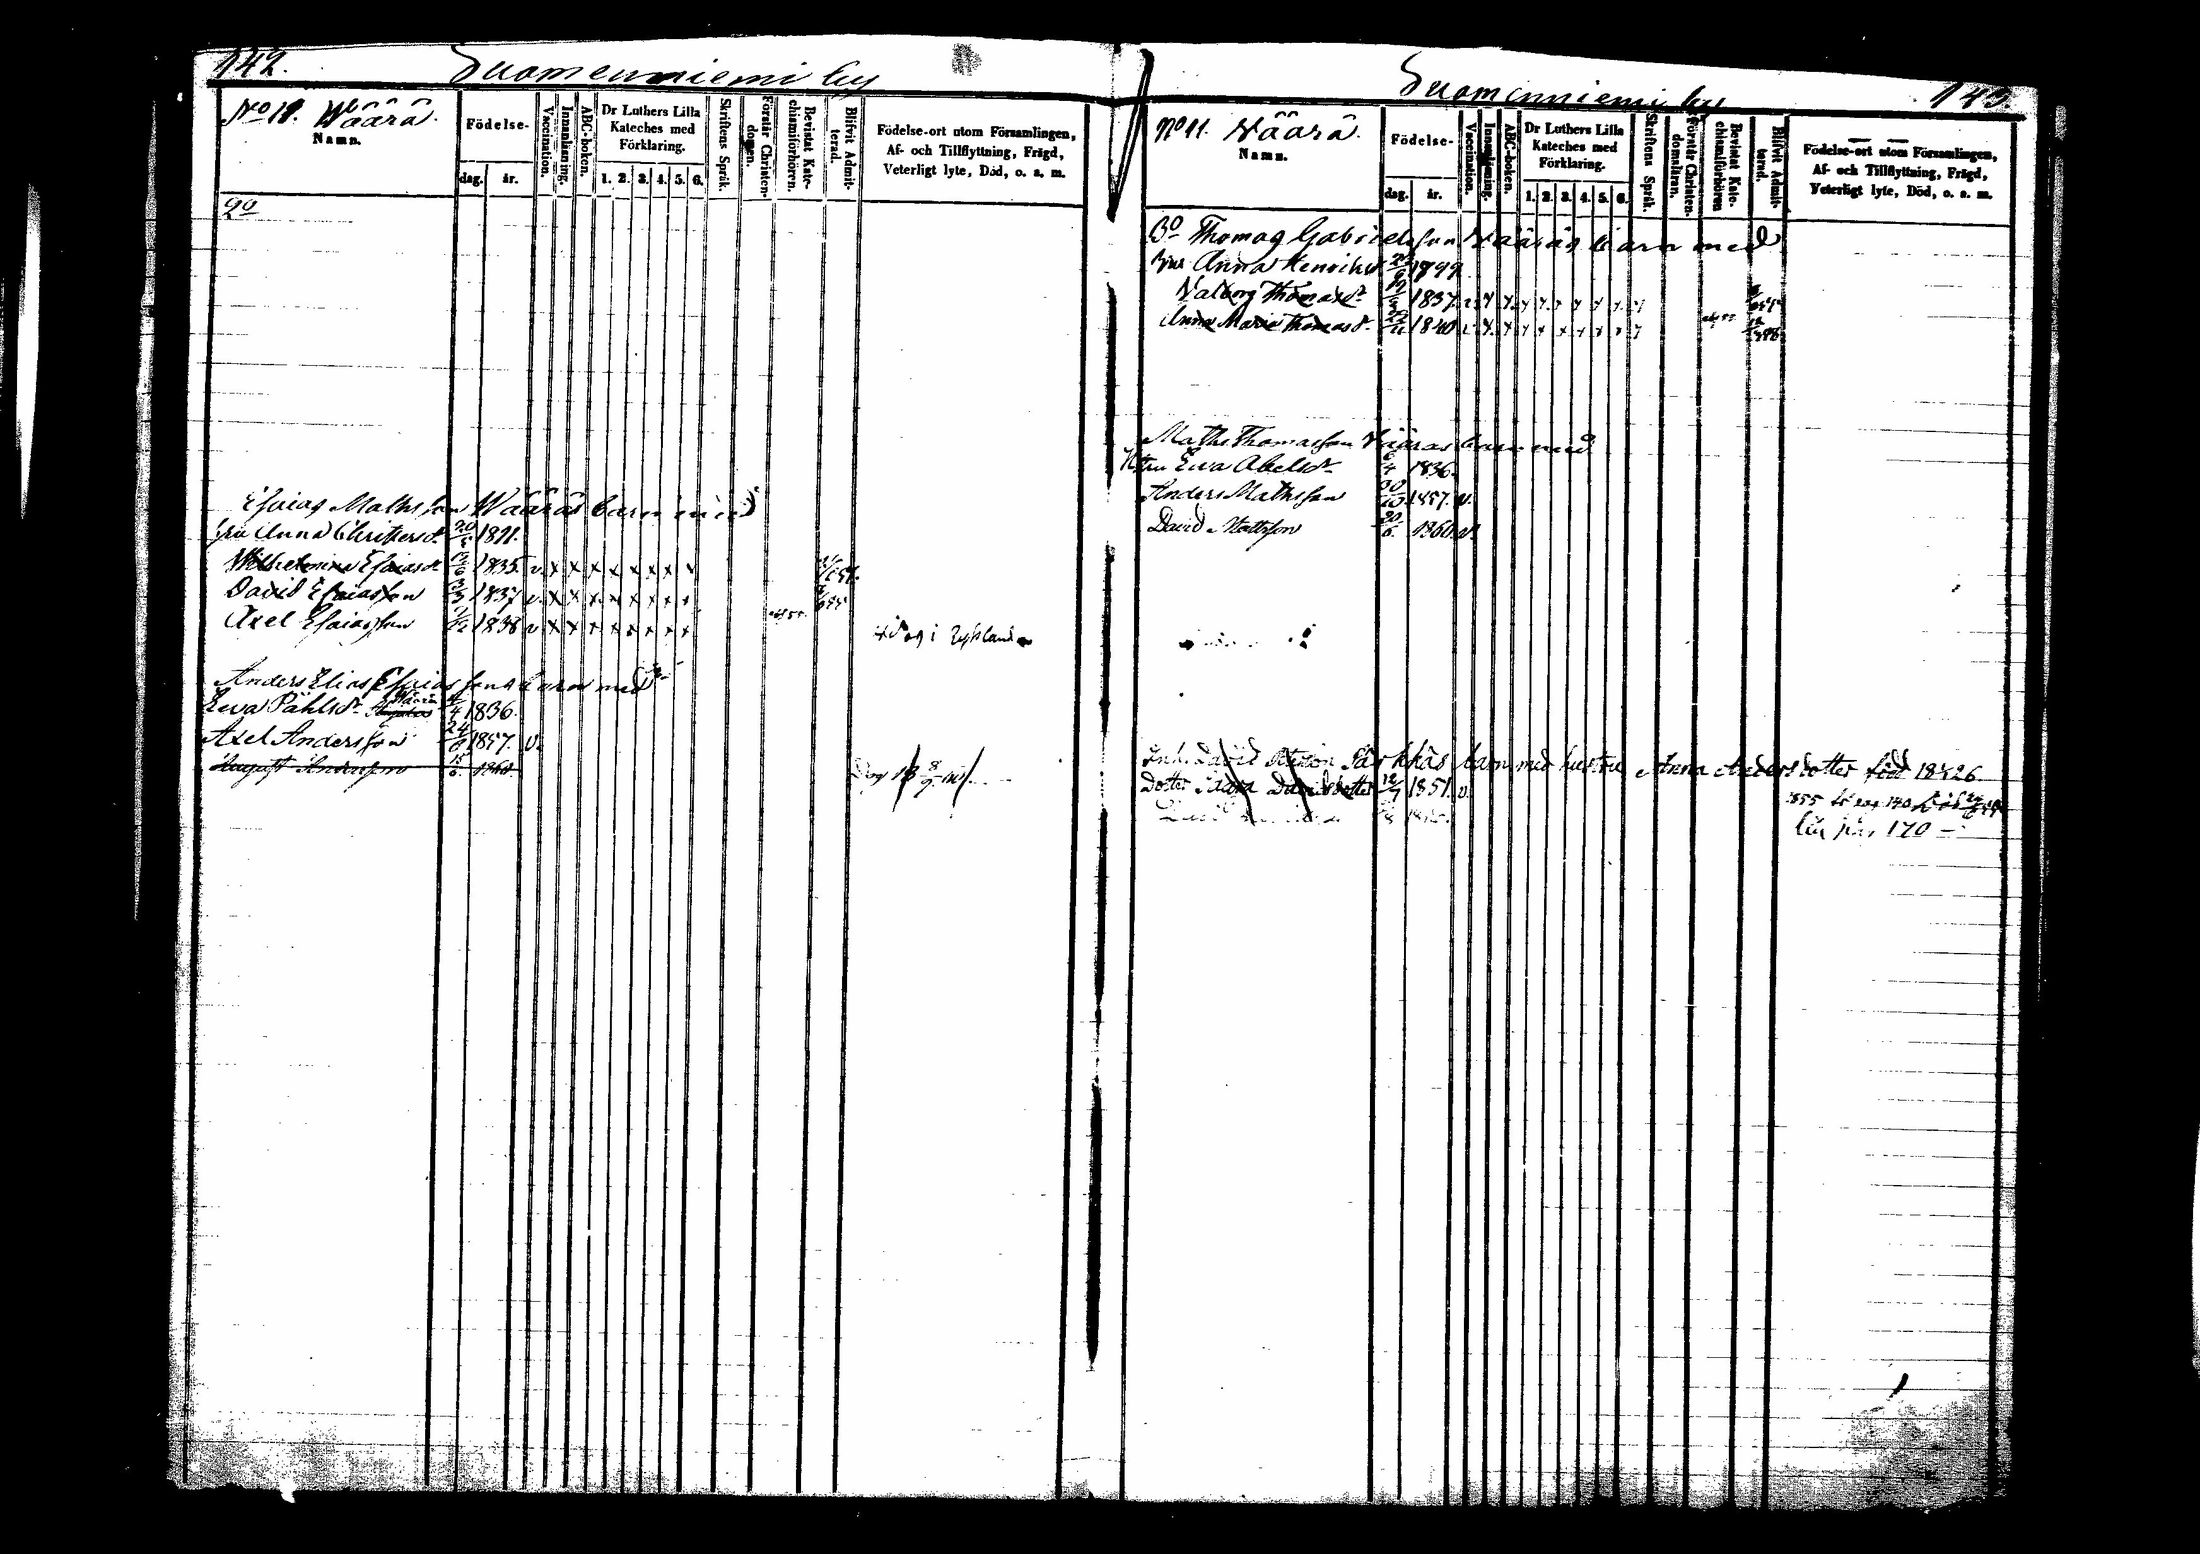 142.
Suomenniemi by
No 11. Wäärä.
Namn.
Födelse-
dag. år.
Vaccination.
Innanläsning.
ABC-boken.
Dr Luthers Lilla Kateches med Förklaring.
1. 2. 3. 4. 5. 6.
Skriftens Språk.
Förstår Christendomen.
Bevistat Katechismiförhören.
Blifvit Admitterad.
Födelse-ort utom Församlingen,
Af- och Tillflyttning, Frägd,
Veterligt lyte, Död, o. s. m.
2o
Esaias Mathsson Wääräs barn med
fru Anna Christersdr 1811.
Wilhelmina Esaiasdr 1835. v. x x x x x x x x
David Esaiasson 1837 v. x x x x x x x x
Axel Esaiasson 1838 v x x x x x x x x
Anders Elias Esaiassons barn med
Ewa Påhlsdr 1836.
Axel Andersson 1857. v.
August Andersson 1860
143.
Suomenniemi by
No 11. Wäärä.
Namn.
Födelse-
dag. år.
Vaccination.
Innanläsning.
ABC-boken.
Dr Luthers Lilla Kateches med Förklaring.
1. 2. 3. 4. 5. 6.
Skriftens Språk.
Förstår Christendomsläran.
Bevistat Katechismiförhören
Blifvit Admitterad.
Födelse-ort utom Församlingen,
Af- och Tillflyttning, Frägd,
Veterligt lyte, Död, o. s. m.
3o Thomas Gabrielsson Wääräs barn med
Anna Henriksdr 1799.
Walborg Thomasdr 1837.
Anna Maria Thomasdr 1840
Maths Thomasson Wääräs barn med
Ewa Abelsdr 1836.
Anders Mathsson 30/10 1857. v.
David Mathsson 1860. v.
Inh. David barn med hustru Anna Andersdotter född 1826
Dotter Davidsdotter 1851. v.
170